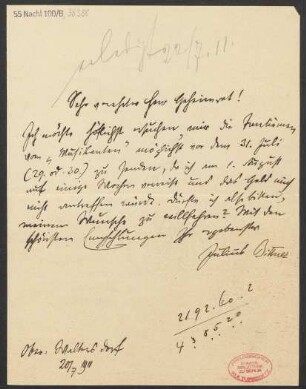 55 Nachl 100/B,
erledigt 20/7.11.
Sehr geehrter Herr Geheimrat!
Ich möchte höflichst ersuchen, mir die Tantiemen
vom "Musikanten" möglichst vor dem 31. Juli
(29. od. 30.) zu senden, da ich am 1. August
auf einige Wochen verreise und das Geld mich
nicht antreffen würde. Dürfte ich also bitten,
meinem Wunsche zu willfahren? Mit den
schönsten Empfehlungen Ihr ergebenster
Julius Bittner
2192.60.2
4385.20
Ober-Waltersdorf
20/7